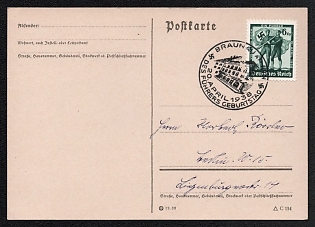 Absender:
Postkarte
Wohnort, auch Zustell- oder Leitpostamt
Straße, Hausnummer, Gebäudeteil, Stockwerk od. Postschließfachnummer
BRAUNAU
20. APRIL 1938
DES FÜHRERS GEBURTSTAG
6
Deutsches Reich
Herrn Herbert
Berlin W. 15
Straße, Hausnummer, Gebäudeteil, Stockwerk oder Postschließfachnummer
C 154